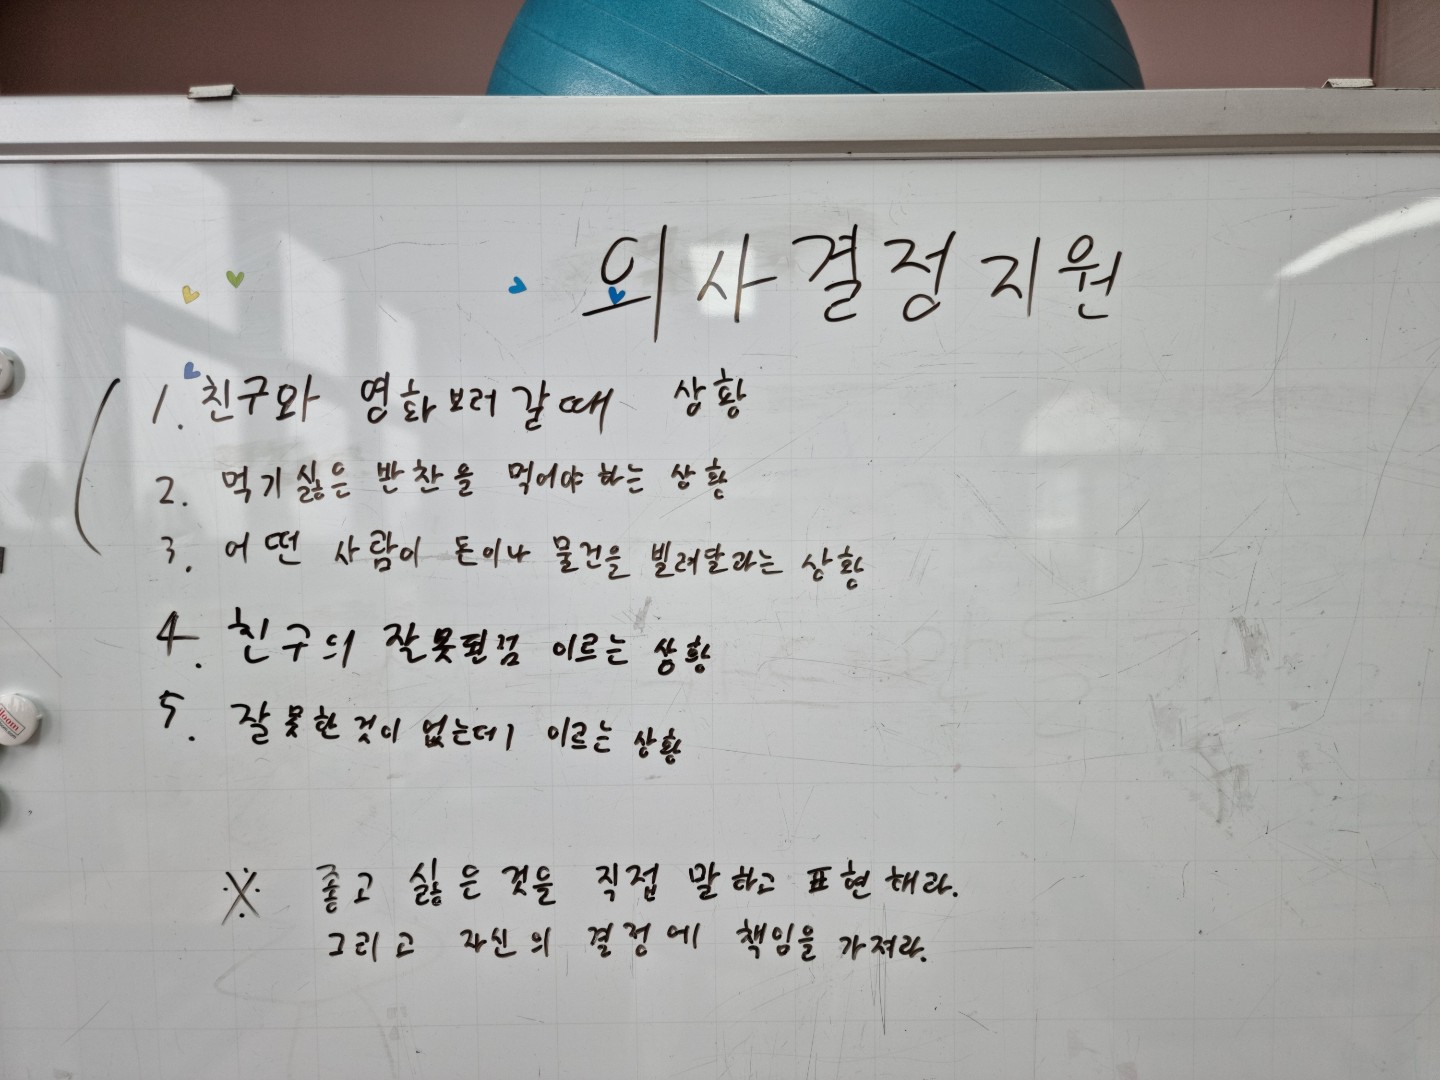 의사결정지원
1. 친구와 영화보러갈때 상황
2. 먹기싫은 반찬을 먹어야하는 상황
3. 어떤 사람이 돈이나 물건을 빌려달라는 상황
4. 친구의 잘못된점 이르는 상황
5. 잘못한것이 없는데 이르는 상황
※ 좋고 싫은 것을 직접 말하고 표현해라.
그리고 자신의 결정에 책임을 가져라.